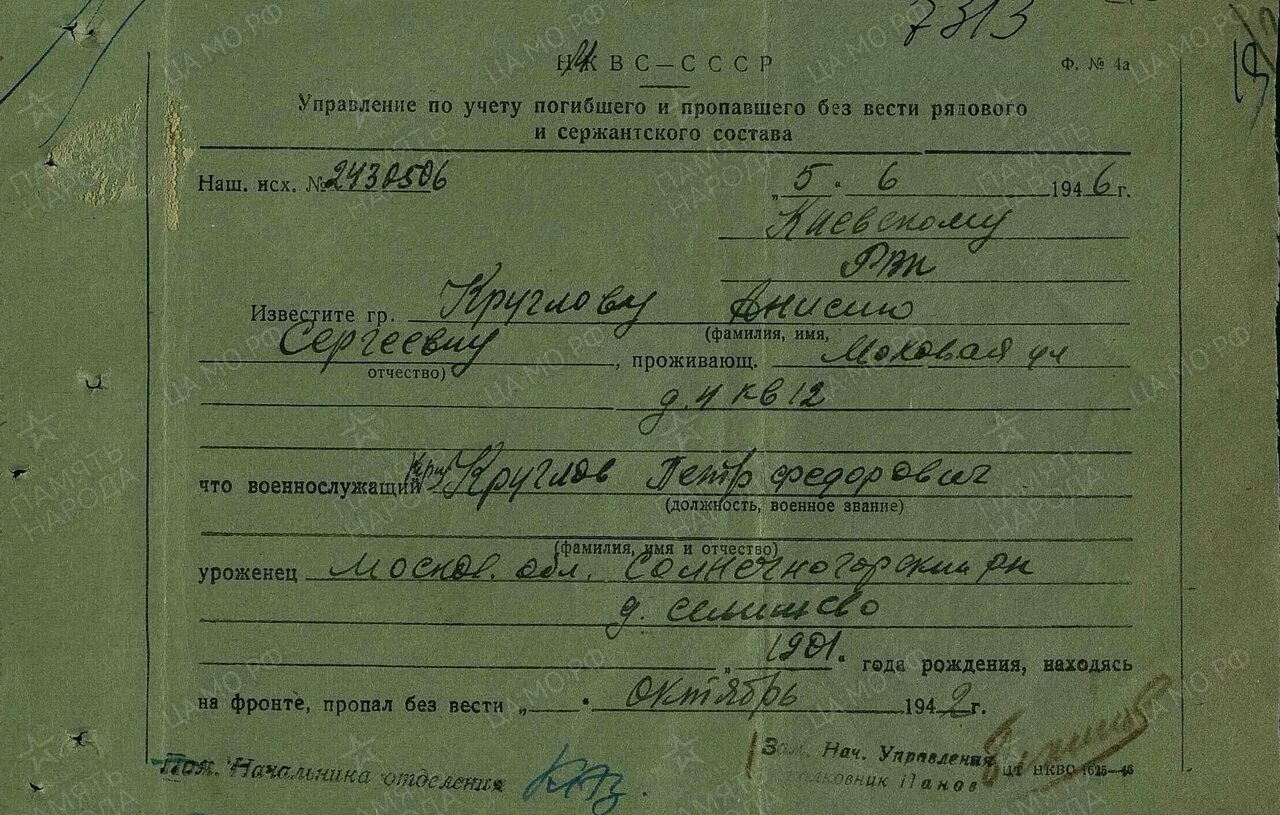 7313
НКВС—СССР
Ф. № 4а
19
Управление по учету погибшего и пропавшего без вести рядового
и сержантского состава
Наш. исх. № 2430506 „5. 6 1946 г.
Киевскому
РВК
Известите гр. Круглову Анисию
(фамилия, имя,
Сергеевну, проживающ. Моховая ул
отчество)
д. 4 кв 12
что военнослужащий Круглов Петр Федорович
(должность, военное звание)
(фамилия, имя и отчество)
уроженец Москов. обл. Солнечногорский рн
д. Селищево
„ 1901. года рождения, находясь
на фронте, пропал без вести „ . октябрь 1942 г.
Зам. Нач. Управления
Пом. Начальника отделения
полковник Панов
ЦТ НКВС 1625—46
ЦА МО РФ
ПАМЯТЬ
НАРОДА